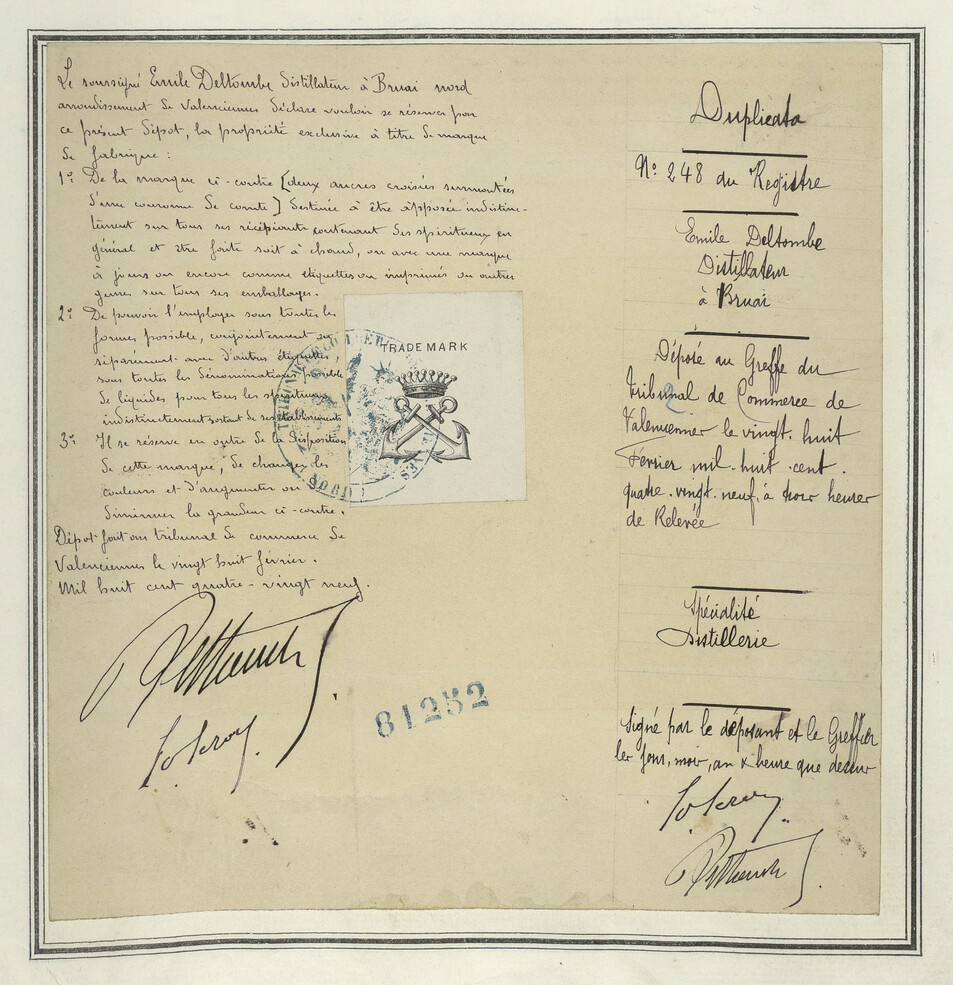 Le soussigné Emile Deltombe Distillateur à Bruai nord
arrondissement de Valenciennes déclare vouloir se réserver par
ce présent dépot, la propriété exclusive à titre de marque
de fabrique :
1º De la marque ci-contre [deux ancres croisées surmontées
d'une couronne de comte] destinée à être apposée indistinc-
tement sur tous ses récipients contenant des spiritueux en
général et être faite soit à chaud, ou avec une marque
à jours ou encore comme étiquettes ou imprimés ou autres
genres sur tous ses emballages.
2º De pouvoir l'employer sous toutes les
formes possible, conjointement ou
séparément avec d'autres étiquettes,
sous toutes les dénominations possible
de liquides pour tous les spiritueux
indistinctement sortant de ses établissements
3º Il se réserve en outre de la disposition
de cette marque, de changer les
couleurs et d'augmenter ou
diminuer la grandeur ci-contre.
Dépot fait au tribunal de commerce de
Valenciennes le vingt huit février.
Mil huit cent quatre-vingt neuf.
TRADE MARK
81252
Duplicata
Nº 248 du Registre
Emile Deltombe
Distillateur
à Bruai
Déposé au Greffe du
Tribunal de Commerce de
Valenciennes le vingt-huit
Février mil-huit-cent-
quatre-vingt-neuf, à trois heures
de Relevée
Spécialité
Distillerie
Signé par le déposant et le Greffier
les jour, mois, an & heure que dessus